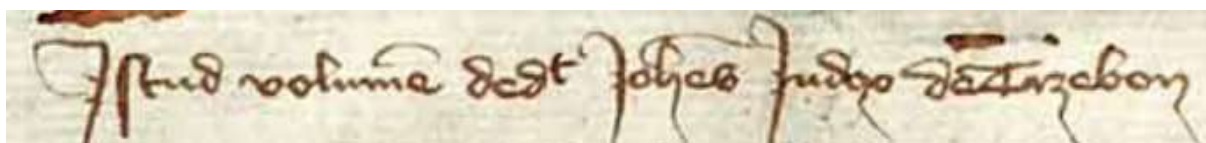 Istud volumē dedt Johēs Judex de Trzebon